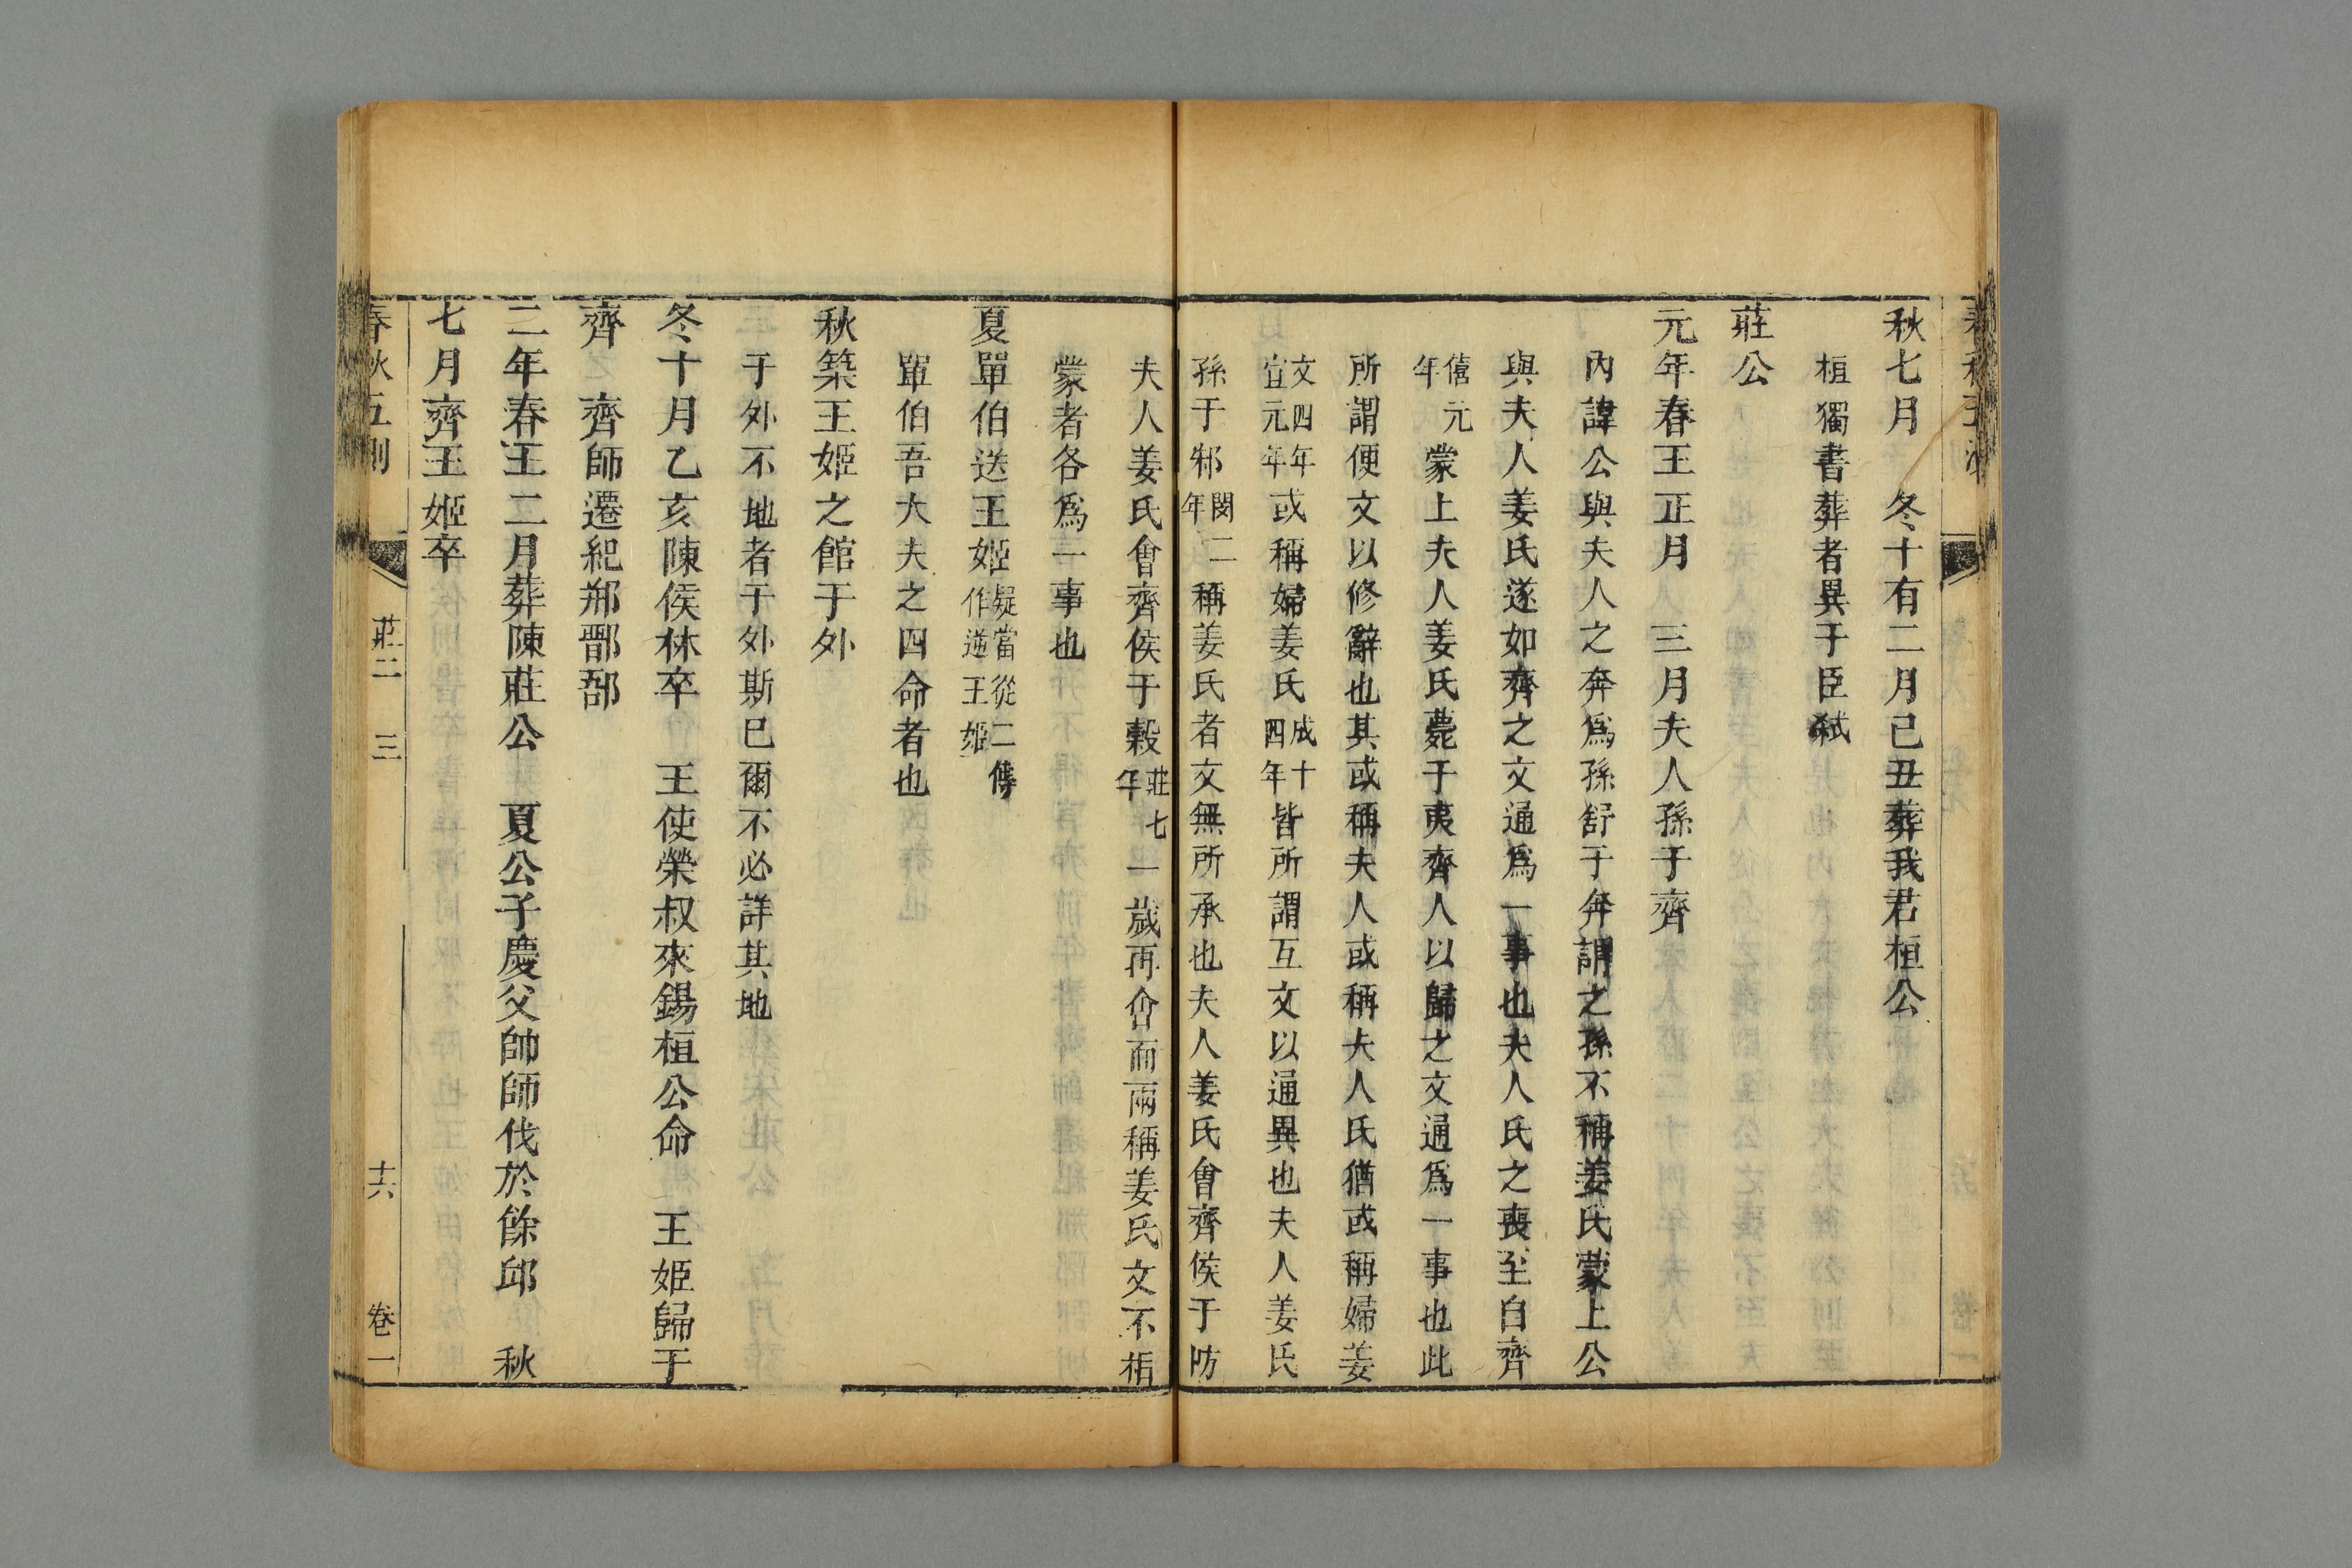 秋七月　冬十有二月己丑葬我君桓公
桓獨書葬者異于臣弑
莊公
元年春王正月　三月夫人孫于齊
內諱公與夫人之奔爲孫舒于奔謂之孫不稱姜氏蒙上公
與夫人姜氏遂如齊之文通爲一事也夫人氏之喪至自齊
僖元年蒙上夫人姜氏薨于夷齊人以歸之文通爲一事也此
所謂便文以修辭也其或稱夫人或稱夫人氏猶或稱婦姜
文四年宣元年或稱婦姜氏成十四年皆所謂互文以通異也夫人姜氏
孫于邾閔二年稱姜氏者文無所承也夫人姜氏會齊侯于防
夫人姜氏會齊侯于穀莊七年一歲再會而兩稱姜氏文不相
蒙者各爲一事也
夏單伯送王姬疑當從二傳作逆王姬
單伯吾大夫之四命者也
秋築王姬之館于外
于外不地者于外斯已爾不必詳其地
冬十月乙亥陳侯林卒　王使榮叔來錫桓公命　王姬歸于
齊　齊師遷紀郱鄑郚
二年春王二月葬陳莊公　夏公子慶父帥師伐於餘邱　秋
七月齊王姬卒
春秋五則　莊二　三　十六　卷一